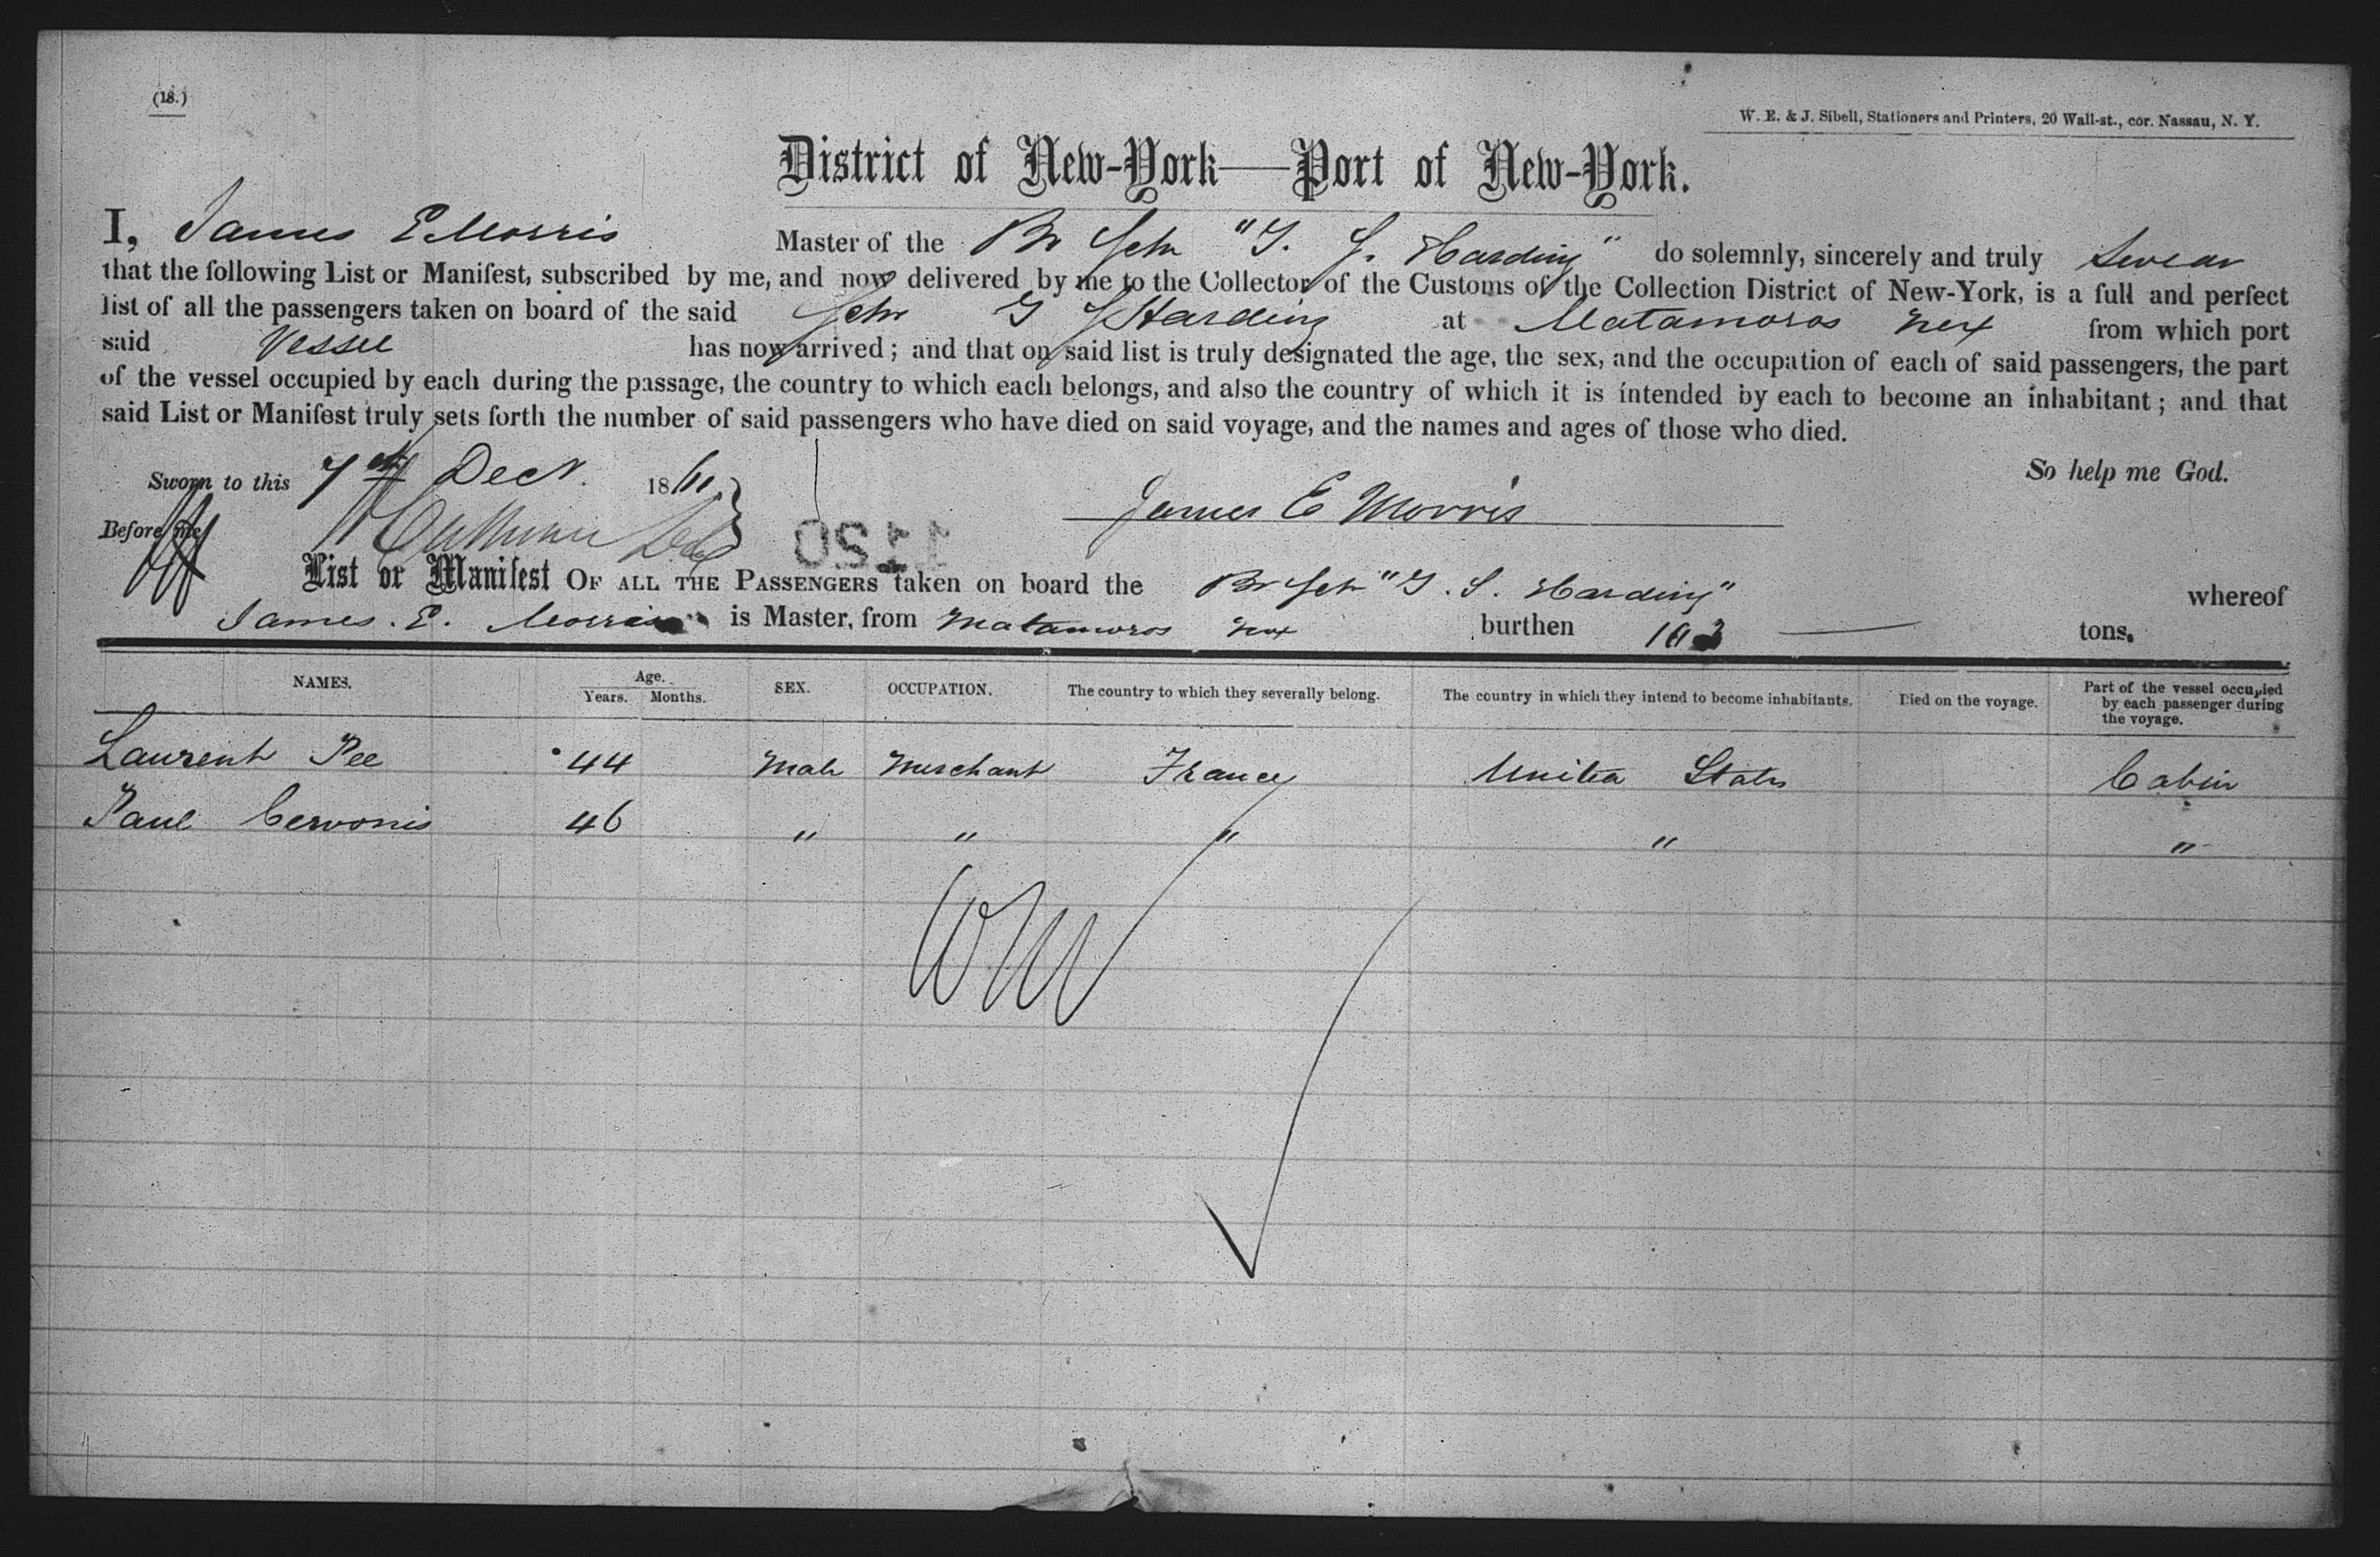 (18.)
W. E. & J. Sibell, Stationers and Printers, 20 Wall-st., cor. Nassau, N. Y.
District of New-York—Port of New-York.
I, James E Morris Master of the Br Schr "G. S. Harding" do solemnly, sincerely and truly swear
that the following List or Manifest, subscribed by me, and now delivered by me to the Collector of the Customs of the Collection District of New-York, is a full and perfect
list of all the passengers taken on board of the said Schr G S Harding at Matamoros Mex from which port
said Vessel has now arrived; and that on said list is truly designated the age, the sex, and the occupation of each of said passengers, the part
of the vessel occupied by each during the passage, the country to which each belongs, and also the country of which it is intended by each to become an inhabitant; and that
said List or Manifest truly sets forth the number of said passengers who have died on said voyage, and the names and ages of those who died.
So help me God.
Sworn to this 7th Decr. 186
James E Morris
Before me
1120
List or Manifest OF ALL THE PASSENGERS taken on board the Br Schr "G. S. Harding" whereof
James. E. Morris is Master, from Matamoros Mex burthen tons.
NAMES. Age. Years. Months. SEX. OCCUPATION. The country to which they severally belong. The country in which they intend to become inhabitants. Died on the voyage. Part of the vessel occupied by each passenger during the voyage.
Laurent Pee 44 Male Merchant France United States Cabin
Paul Cervonis 46 " " " " "